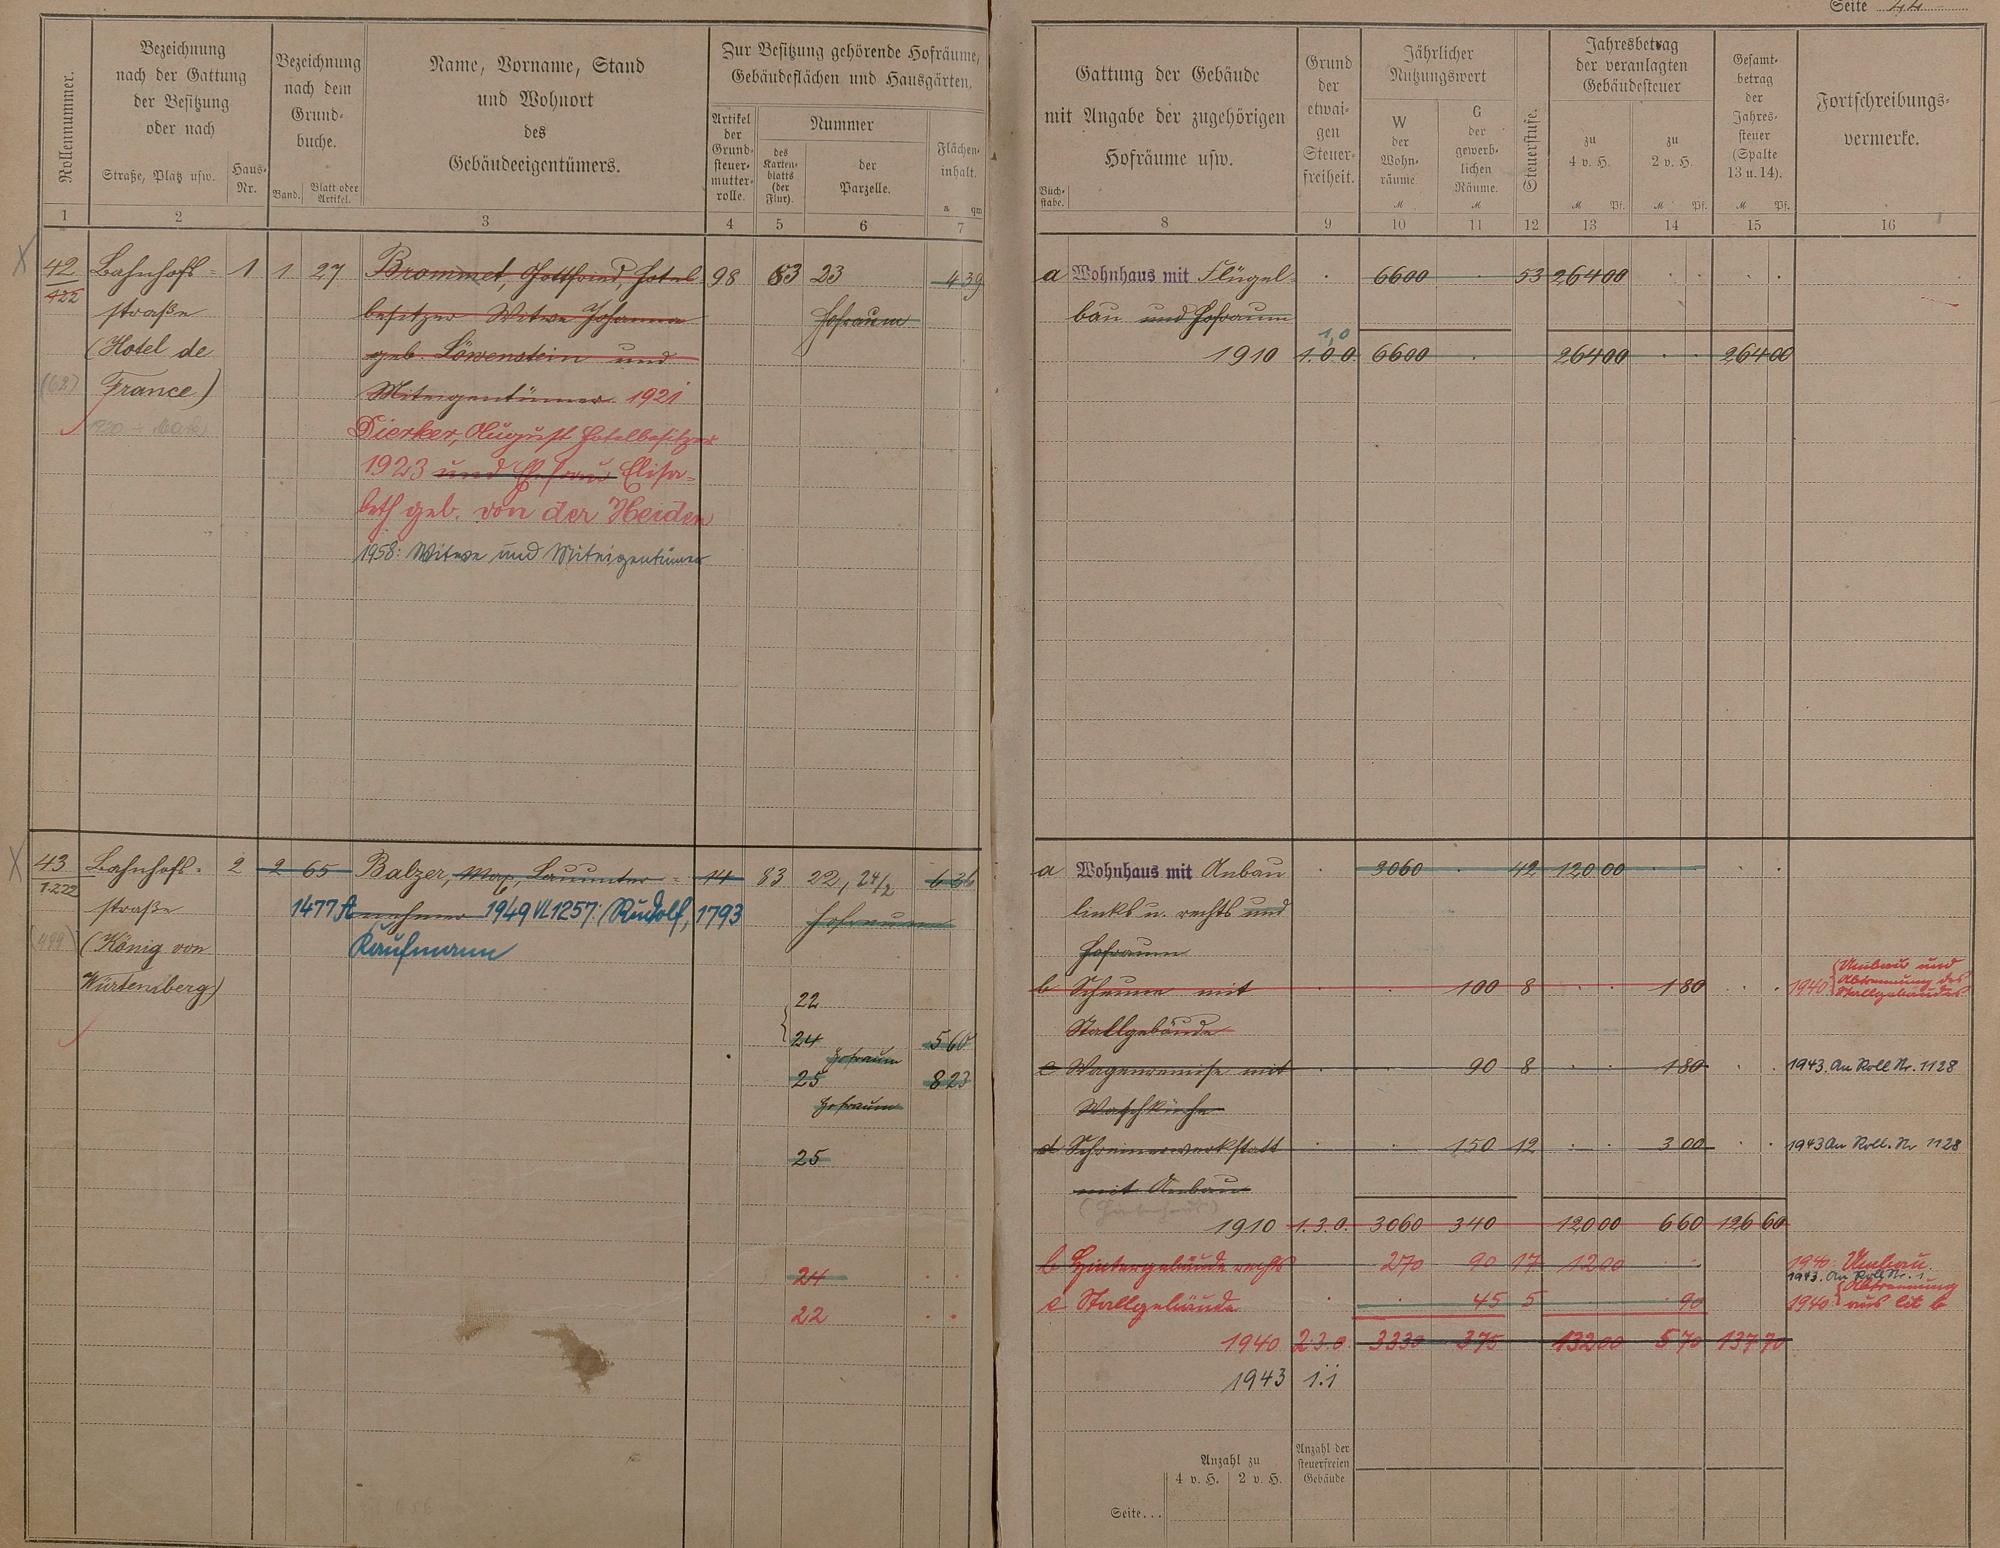 Seite 44
Rollennummer.
Bezeichnung
nach der Gattung
der Besitzung
oder nach
Straße, Platz usw.
Haus-
Nr.
Bezeichnung
nach dem
Grund-
buche.
Band.
Blatt oder
Artikel.
Name, Vorname, Stand
und Wohnort
des
Gebäudeeigentümers.
Zur Besitzung gehörende Hofräume,
Gebäudeflächen und Hausgärten.
Artikel
der
Grund-
steuer-
mutter-
rolle.
Nummer
des
Karten-
blatts
(der
Flur).
der
Parzelle.
Flächen-
inhalt.
a qm
Gattung der Gebäude
mit Angabe der zugehörigen
Hofräume usw.
Buch-
stabe.
Grund
der
etwai-
gen
Steuer-
freiheit.
Jährlicher
Nutzungswert
W
der
Wohn-
räume.
M
G
der
gewerb-
lichen
Räume.
M
Steuerstufe.
Jahresbetrag
der veranlagten
Gebäudesteuer
zu
4 v. H.
M Pf.
zu
2 v. H.
M Pf.
Gesamt-
betrag
der
Jahres-
steuer
(Spalte
13 u. 14).
M Pf.
Fortschreibungs-
vermerke.
1 2 3 4 5 6 7 8 9 10 11 12 13 14 15 16
42 Bahnhofs- 1 1 27 Brommet, Gottfried, Hotel- 98 83 23 4 39 a Wohnhaus mit Flügel- 6600 53 264 00
422 straße besitzer Witwe Johanna Hofraum bau und Hofraum
(Hotel de geb. Löwenstein und 1910 1.0.0. 6600 264 00 264 00
1,0
(62) France) Miteigentümer 1921
Dierker, August Hotelbesitzer
1923 und Ehefrau Elisa-
beth geb. von der Heiden
1958: Witwe und Miteigentümer
43 Bahnhofs- 2 2 65 Balzer, Max, 14 83 22, 24/2 6 36 a Wohnhaus mit Anbau 3060 42 120 00
1222 straße 1477 A 1949 VL 1257: Rudolf, 1793 Hofraum links u. rechts und
(König von Kaufmann Hofraum
Würtemberg) 22 b Scheune mit 100 8 1 80 1940 Umbau und
Abtrennung des
Stallgebäudes
24 5 60 Stallgebäude
Hofraum
25 8 23 c Wagenremise mit 90 8 1 80 1943. An Roll Nr. 1128
Hofraum Waschküche
25 d Schreinerwerkstatt 150 12 3 00 1943 An Roll. Nr 1128
mit Anbau
1910 1.3.0. 3060 340 120 00 6 60 126 60
24 b Hintergebäude rechts 270 90 17 12 00 1940: Umbau.
1943. An Roll Nr.
22 c Stallgebäude 45 5 90 1940 Abtrennung
aus lit b
1940 2.3.0. 3330 375 132 00 5 70 137 70
1943 1.1
Anzahl zu
4 v. H. 2 v. H.
Anzahl der
steuerfreien
Gebäude
Seite...